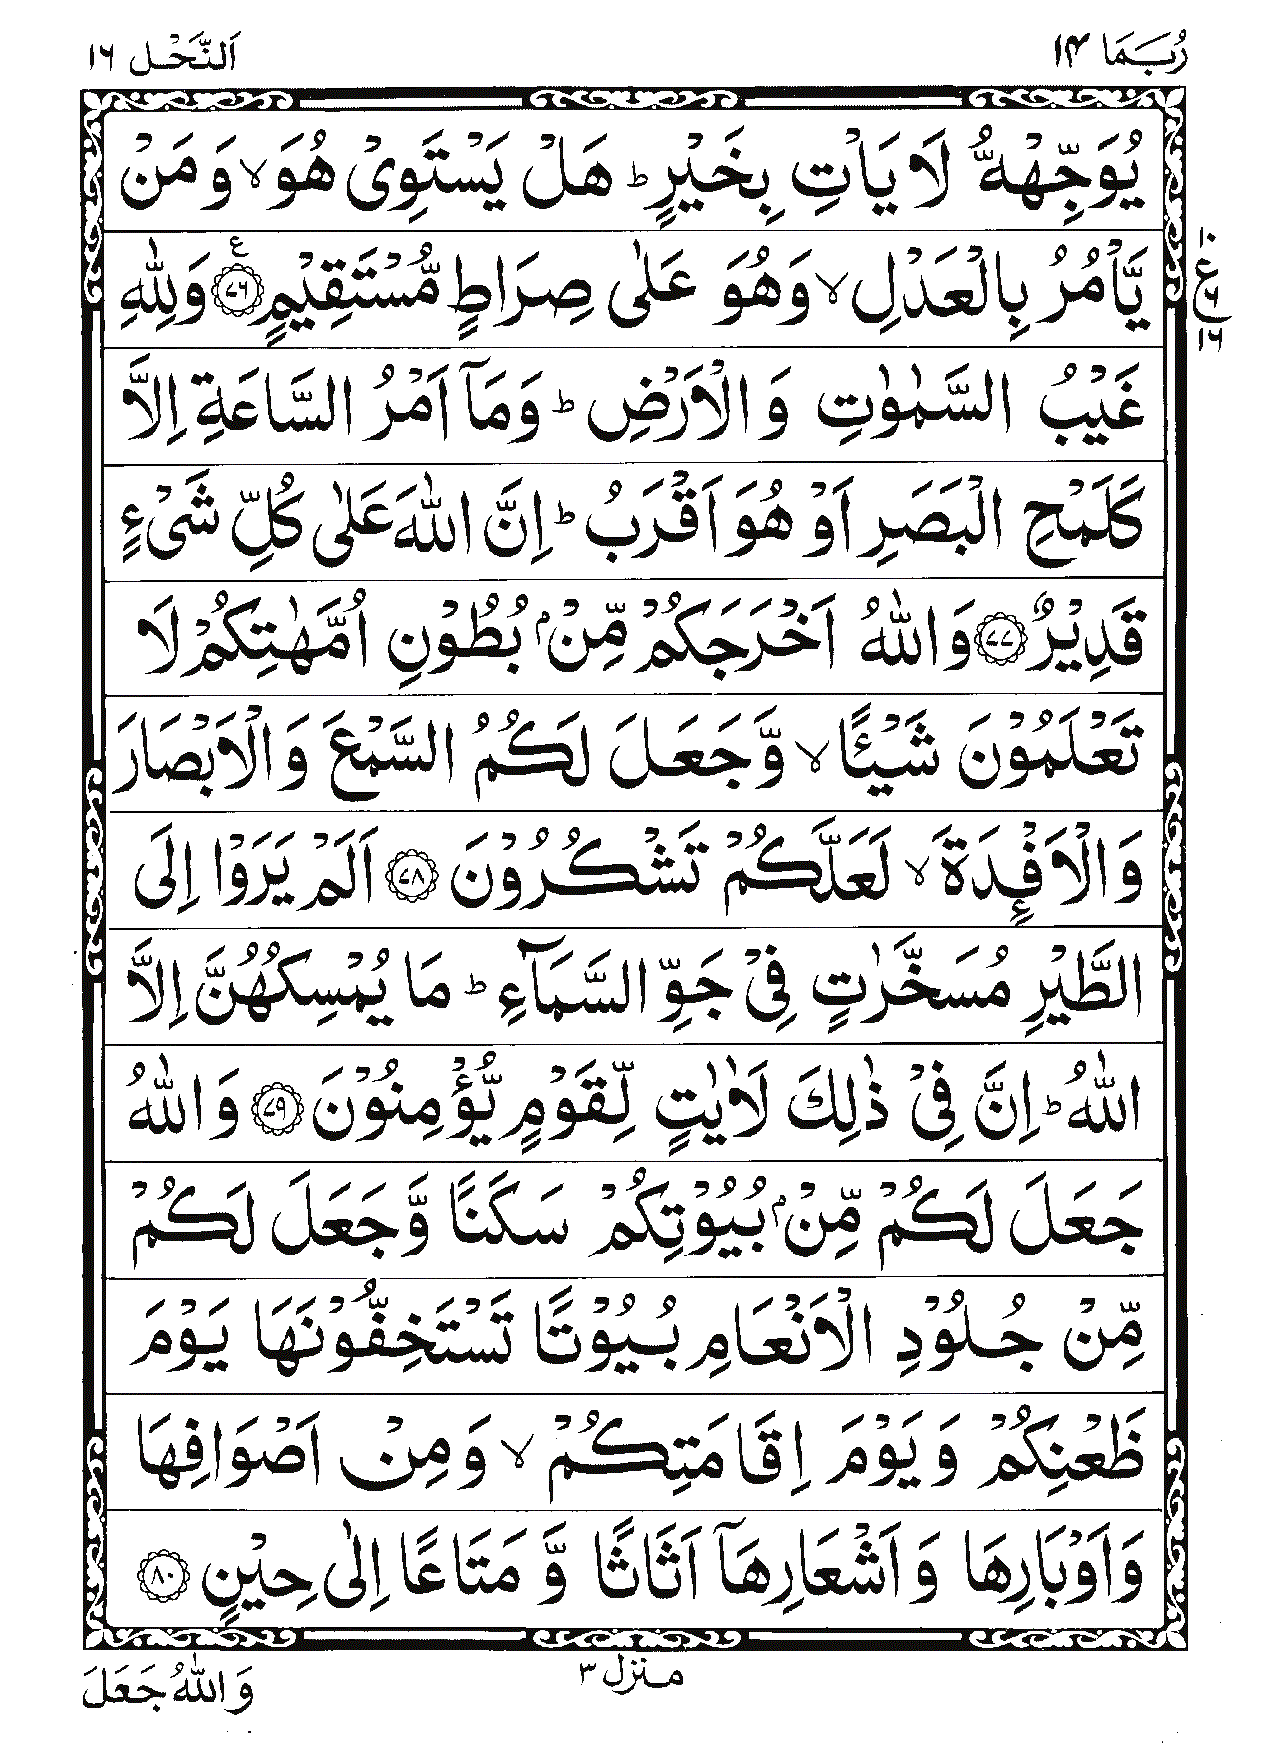 رُبَمَا ١٤
اَلنَّحْل ١٦
يُوَجِّهْهُّ لَا يَاْتِ بِخَيْرٍ ؕ هَلْ يَسْتَوِىْ هُوَ ۙ وَ مَنْ
يَّاْمُرُ بِالْعَدْلِ ۙ وَهُوَ عَلٰى صِرَاطٍ مُّسْتَقِيْمٍ ۧ ﴿٧٦﴾ وَلِلّٰهِ
١٠
ع
٦
١٦
غَيْبُ السَّمٰوٰتِ وَ الْاَرْضِ ؕ وَمَاۤ اَمْرُ السَّاعَةِ اِلَّا
كَلَمْحِ الْبَصَرِ اَوْ هُوَ اَقْرَبُ ؕ اِنَّ اللّٰهَ عَلٰى كُلِّ شَىْءٍ
قَدِيْرٌ ﴿٧٧﴾ وَاللّٰهُ اَخْرَجَكُمْ مِّنْۢ بُطُوْنِ اُمَّهٰتِكُمْ لَا
تَعْلَمُوْنَ شَيْـًٔا ۙ وَّجَعَلَ لَكُمُ السَّمْعَ وَ الْاَبْصَارَ
وَ الْاَفْـِٕدَةَ ۙ لَعَلَّكُمْ تَشْكُرُوْنَ ﴿٧٨﴾ اَلَمْ يَرَوْا اِلَى
الطَّيْرِ مُسَخَّرٰتٍ فِىْ جَوِّ السَّمَآءِ ؕ مَا يُمْسِكُهُنَّ اِلَّا
اللّٰهُ ؕ اِنَّ فِىْ ذٰلِكَ لَاٰيٰتٍ لِّقَوْمٍ يُّؤْمِنُوْنَ ﴿٧٩﴾ وَ اللّٰهُ
جَعَلَ لَكُمْ مِّنْۢ بُيُوْتِكُمْ سَكَنًا وَّجَعَلَ لَكُمْ
مِّنْ جُلُوْدِ الْاَنْعَامِ بُيُوْتًا تَسْتَخِفُّوْنَهَا يَوْمَ
ظَعْنِكُمْ وَ يَوْمَ اِقَامَتِكُمْ ۙ وَ مِنْ اَصْوَافِهَا
وَاَوْبَارِهَا وَ اَشْعَارِهَاۤ اَثَاثًا وَّ مَتَاعًا اِلٰى حِيْنٍ ﴿٨٠﴾
منزل ٣
وَ اللّٰهُ جَعَلَ